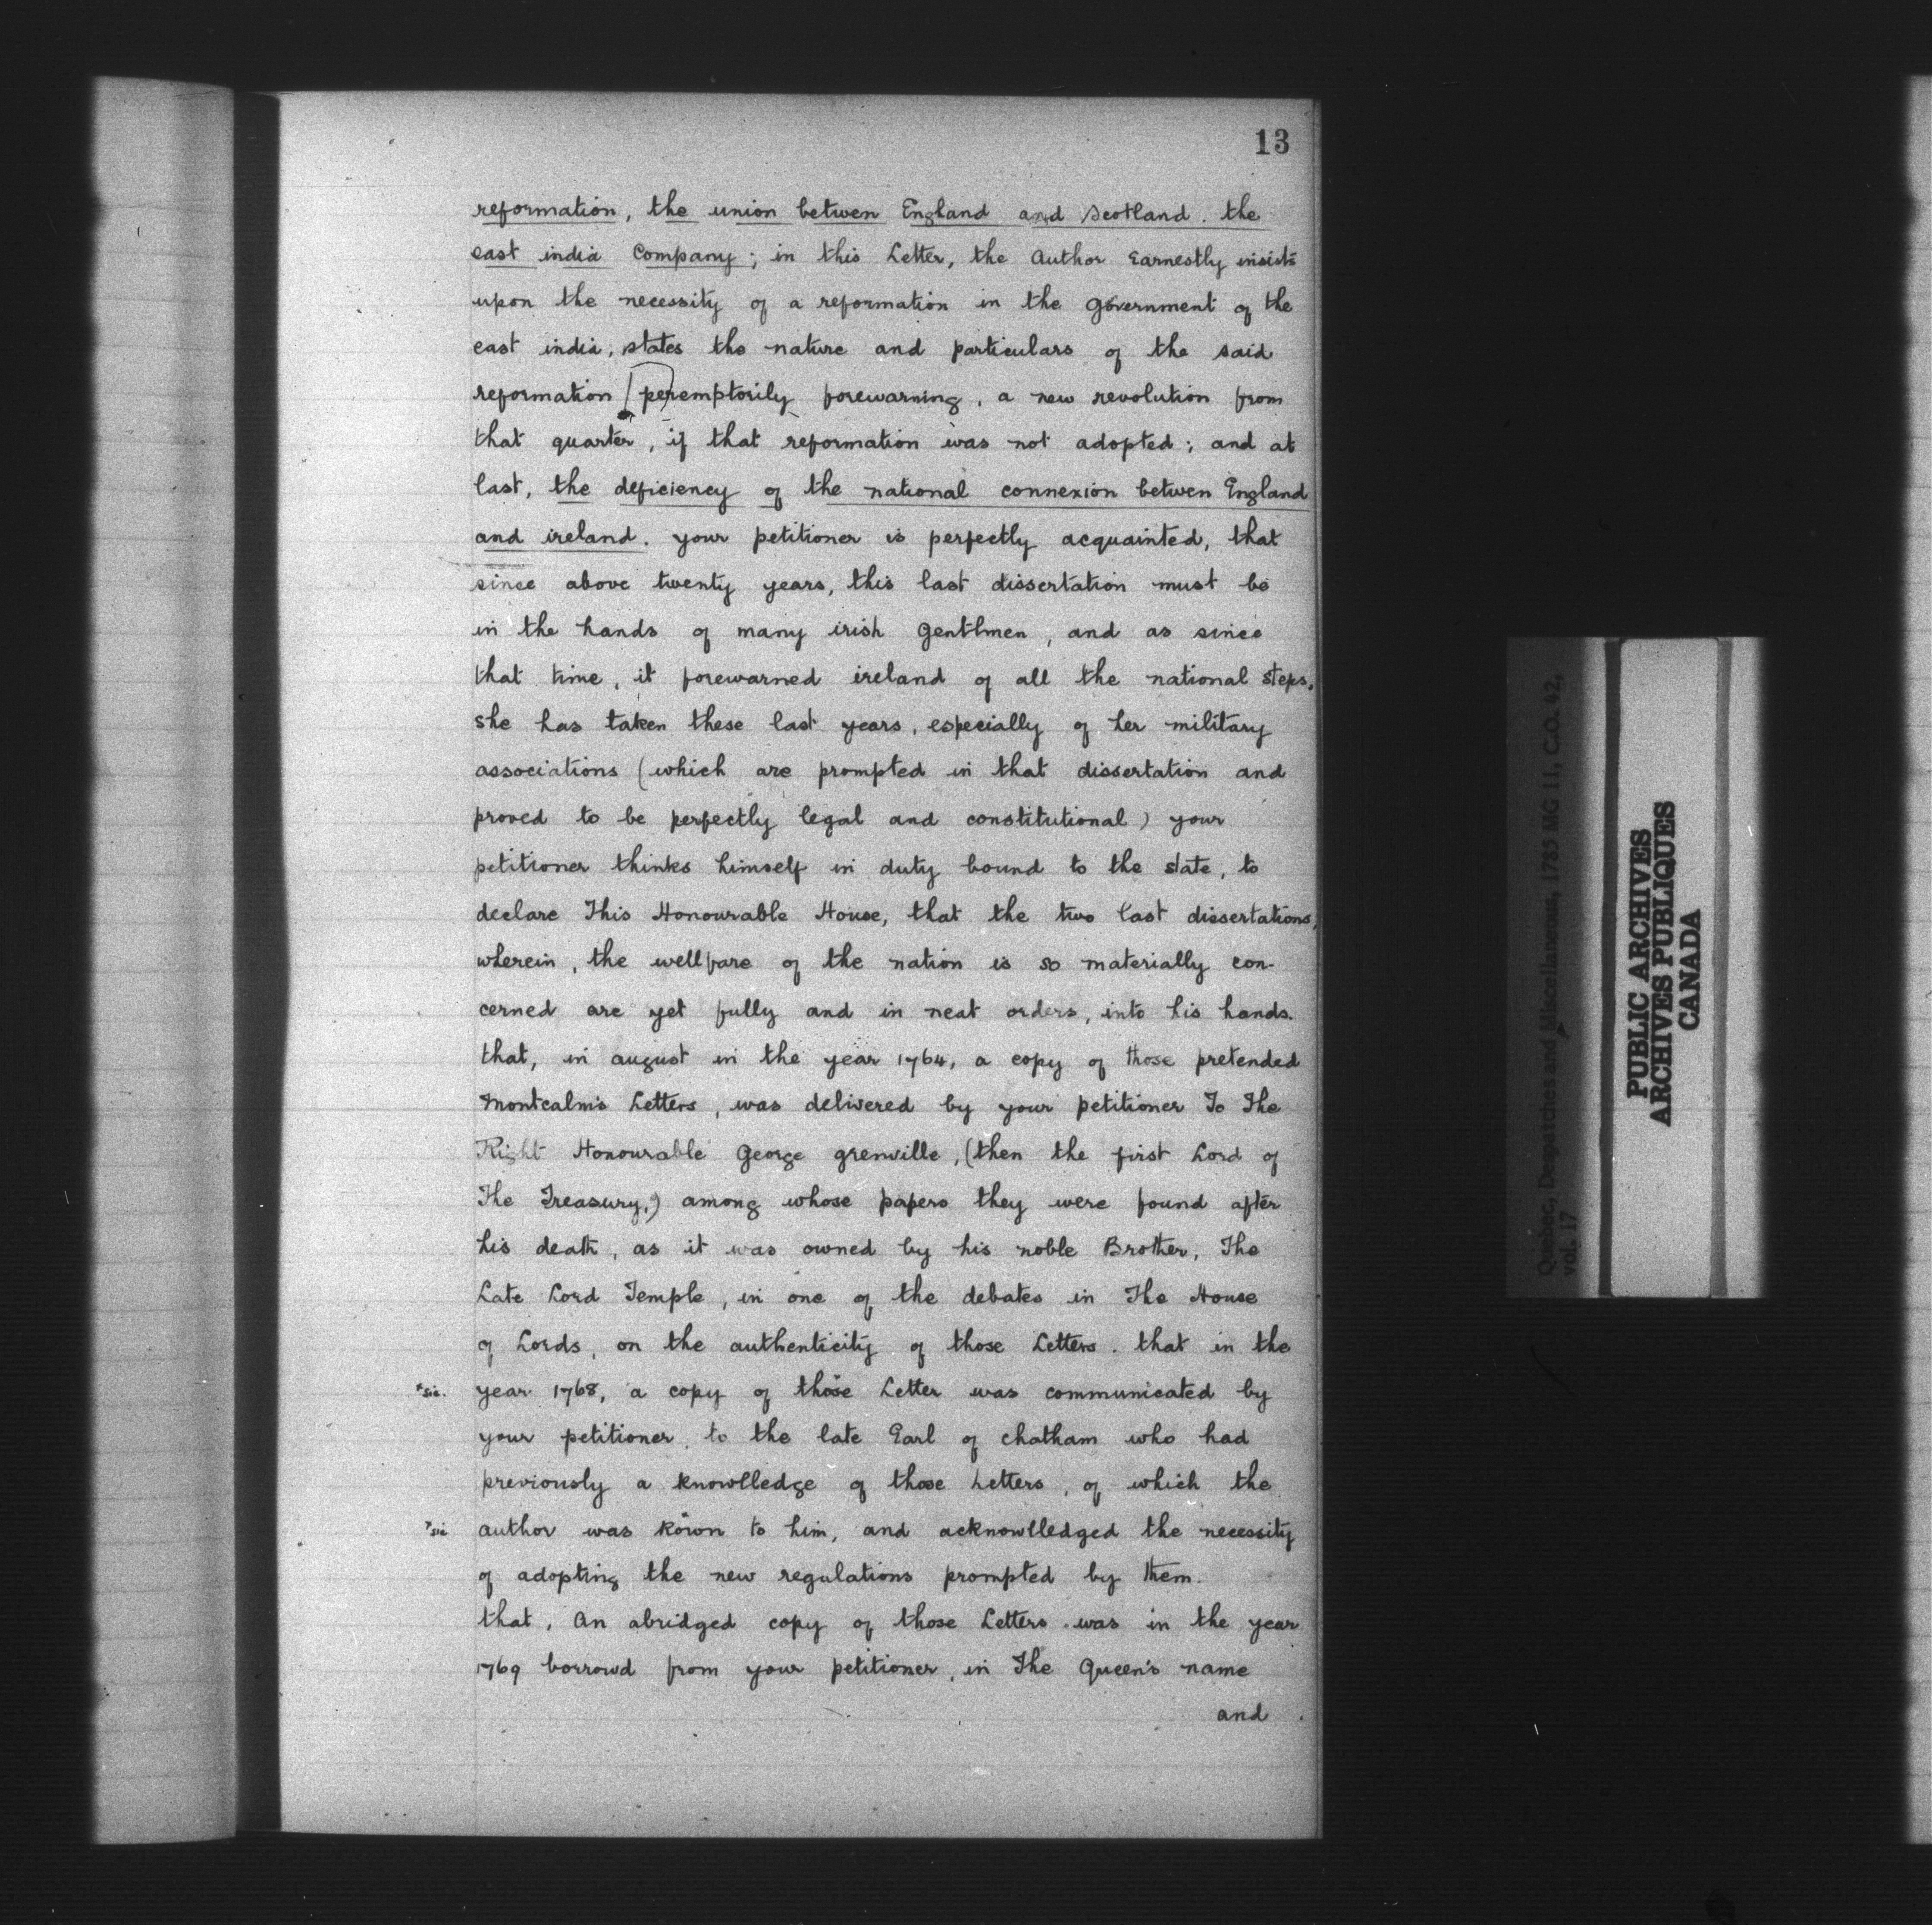 13
reformation, the union betwen England and Scotland. the
east india Company; in this Letter, the Author Earnestly insists
upon the necessity of a reformation in the government of the
east india, states the nature and particulars of the said
reformation peremptorily forewarning, a new revolution from
that quarter, if that reformation was not adopted; and at
last, the deficiency of the national connexion betwen England
and ireland. your petitioner is perfectly acquainted, that
since above twenty years, this last dissertation must be
in the hands of many irish gentlmen, and as since
that time, it forewarned ireland of all the national steps,
she has taken these last years, especially of her military
associations (which are prompted in that dissertation and
proved to be perfectly legal and constitutional) your
petitioner thinks himself in duty bound to the state, to
declare This Honourable House, that the two last dissertations,
wherein, the wellfare of the nation is so materially con-
cerned are yet fully and in neat orders, into his hands.
that, in august in the year 1764, a copy of those pretended
Montcalm's Letters, was delivered by your petitioner To The
Right Honourable George grenville, (then the first Lord of
The Treasury,) among whose papers they were found after
his death, as it was owned by his noble Brother, The
Late Lord Temple, in one of the debates in The House
of Lords, on the authenticity of those Letters. that in the
*sic. year 1768, a copy of those* Letter was communicated by
your petitioner, to the late Earl of chatham who had
previously a knowlledge of those Letters, of which the
*sic author was kown* to him, and acknowlledged the necessity
of adopting the new regulations prompted by them.
that, An abridged copy of those Letters was in the year
1769 borrowd from your petitioner, in The Queen's name
and
Quebec, Despatches and Miscellaneous, 1785 MG 11, C.O. 42,
vol. 17
PUBLIC ARCHIVES
ARCHIVES PUBLIQUES
CANADA